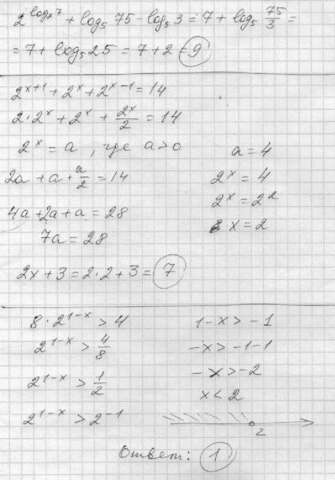 2^{log₂7} + log₅ 75 - log₅ 3 = 7 + log₅ 75/3 =
= 7 + log₅ 25 = 7 + 2 = 9
2^{x+1} + 2^x + 2^{x-1} = 14
2·2^x + 2^x + 2^x/2 = 14
2^x = a, где a>0
2a + a + a/2 = 14
4a + 2a + a = 28
7a = 28
a = 4
2^x = 4
2^x = 2^2
x = 2
2x + 3 = 2·2 + 3 = 7
8·2^{1-x} > 4
2^{1-x} > 4/8
2^{1-x} > 1/2
2^{1-x} > 2^{-1}
1-x > -1
-x > -1-1
-x > -2
x < 2
2
Ответ: 1